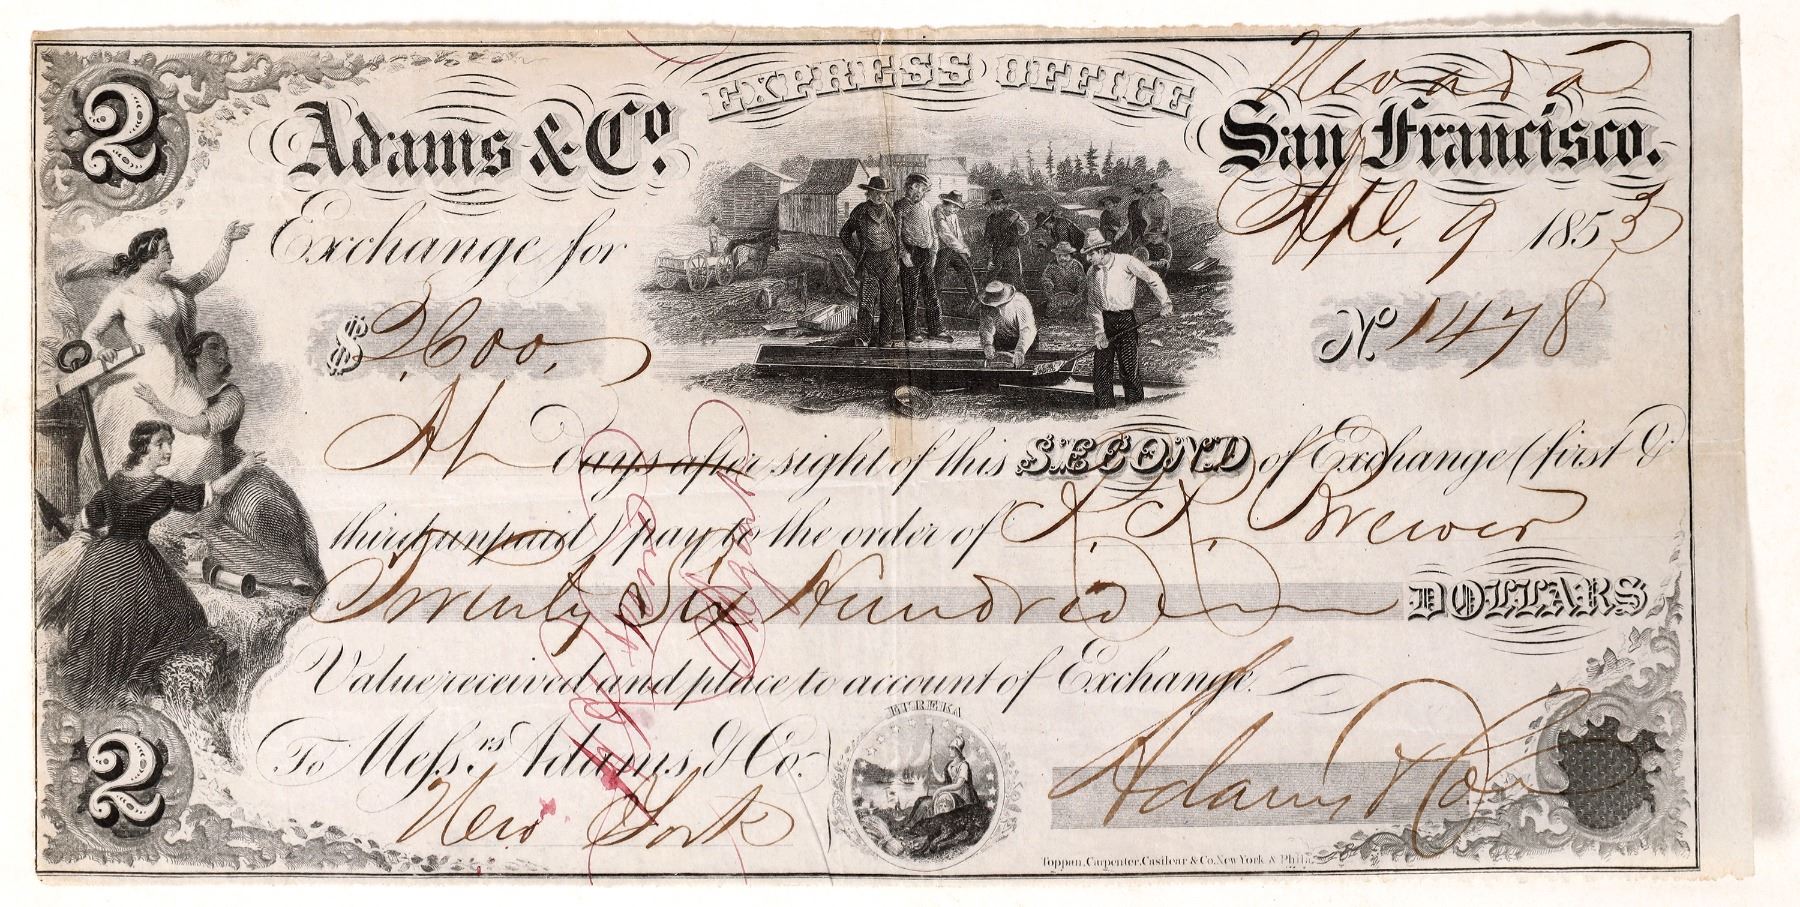 2
EXPRESS OFFICE
Nevada
Adams & Co.
San Francisco.
Exchange for
Apl. 9 1853
$ 2600.
No. 1478
At days after sight of this SECOND of Exchange (first &
third unpaid) pay to the order of R. R. Brewer
Twenty Six Hundred DOLLARS
Value received and place to account of Exchange.
To Messrs. Adams & Co.
New York
2
EUREKA
Adams & Co
Toppan, Carpenter, Casilear & Co. New York & Phila.